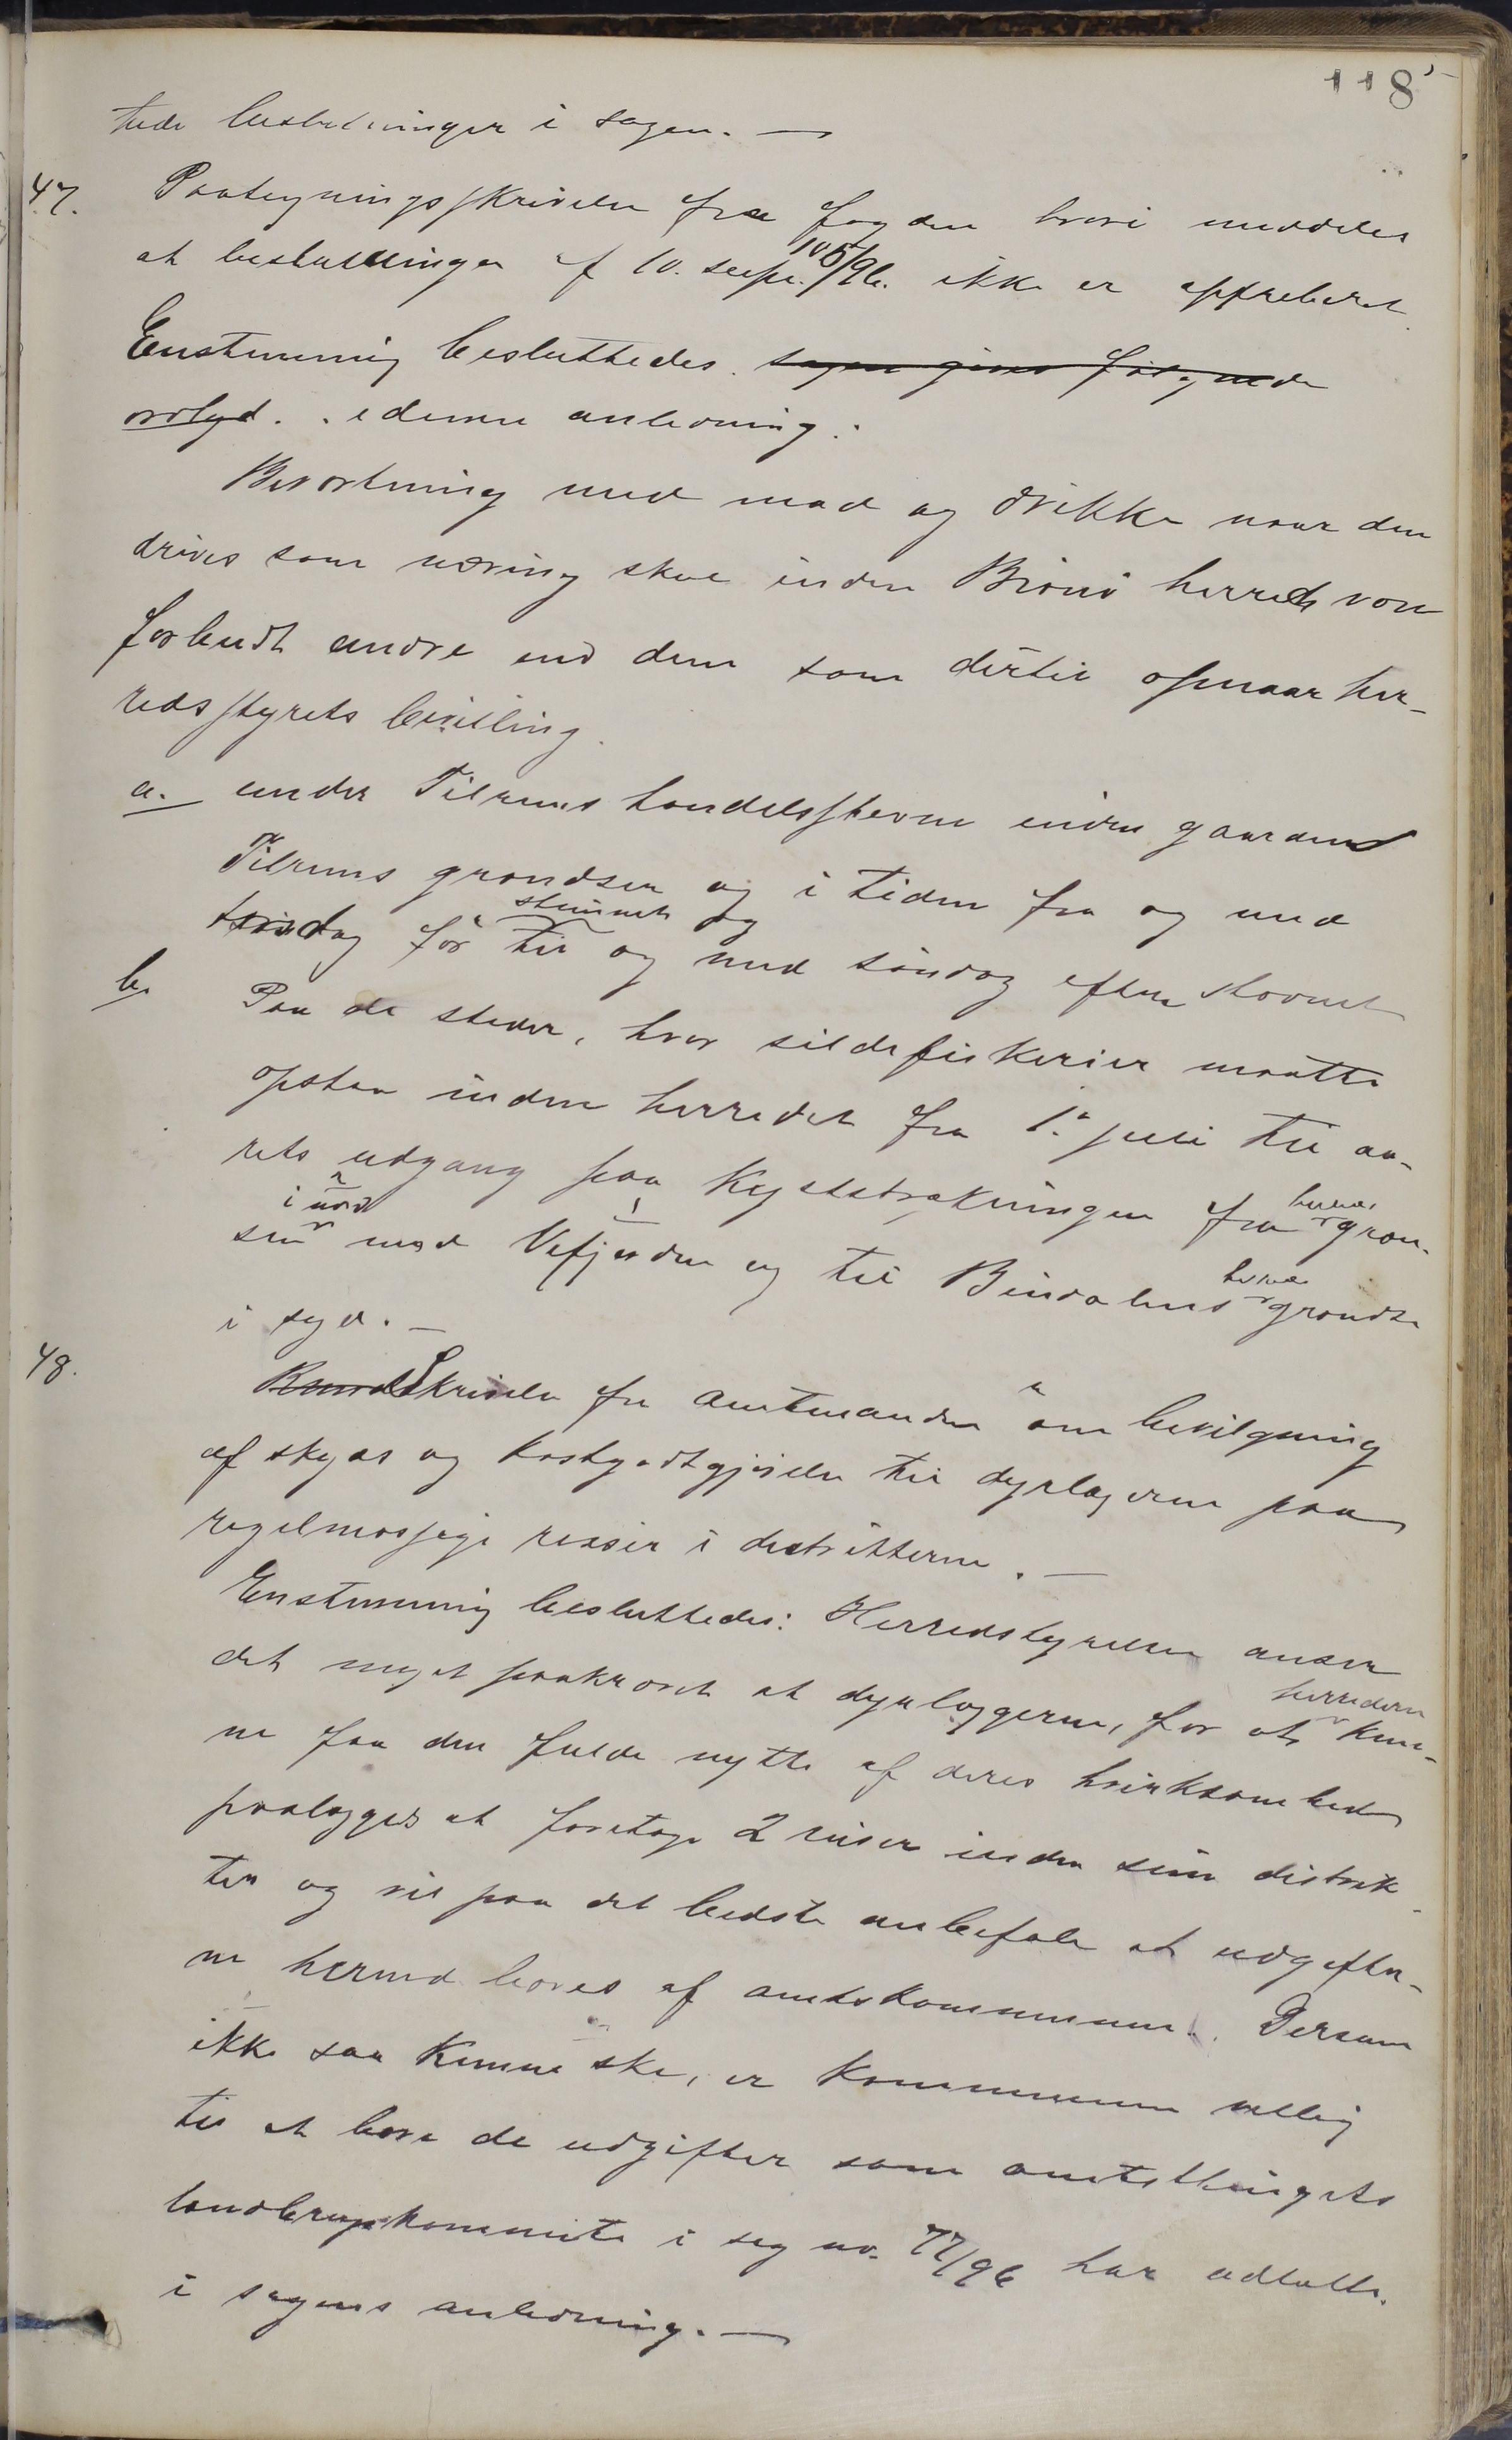 118
tede beslutninger i sagen. —
47. Paategningsskrivelse fra fogden hvori meddeles
at beslutningen af 10. septr. 106/96. ikke er approberet.
Enstemmig besluttedes. sagen gives følgende
ordlyd. i denne anledning:
Bevertning med mad og drikke naar den
drives som næring skal inden Brønø herred være
forbudt andre end dem som dertil opnaar her-
redsstyrets bevilling.
a. under Tilrems handelsstevne inden gaarden
Tilrems grændser og i tiden fra og med
torsdag før stevnet og til og med søndag efter stevnet
b. Paa de steder, hvor sildefiskerier maatte
opstaa inden herredet fra 1. juli til aa-
rets udgang paa kyststrækningen fra herreds græn-
sen i nord mod Vefjorden og til Bindalens herreds grændse
i syd. —
48. Rund Skrivelse fra Amtmanden om bevilgning
af skyds og kostgodtgjørelse til dyrlægerne paa
regelmæssige reiser i distrikterne. —
Enstemmig besluttedes: Herredstyrelsen anser
det meget paakrævet at dyrlægerne, for at herrederne kun-
ne faa den fulde nytte af deres virksomhed
paalægges at foretage 2 reiser inden sine distrik-
ter og vil paa det bedste anbefale at udgifter-
ne hermed bæres af amtskommunen. Dersom
ikke saa kunne ske, er kommunen villig
til at bære de udgifter som amtsthingets
landbrugskommite i sag no. 77/96 har udtalt.
i sagens anledning. —